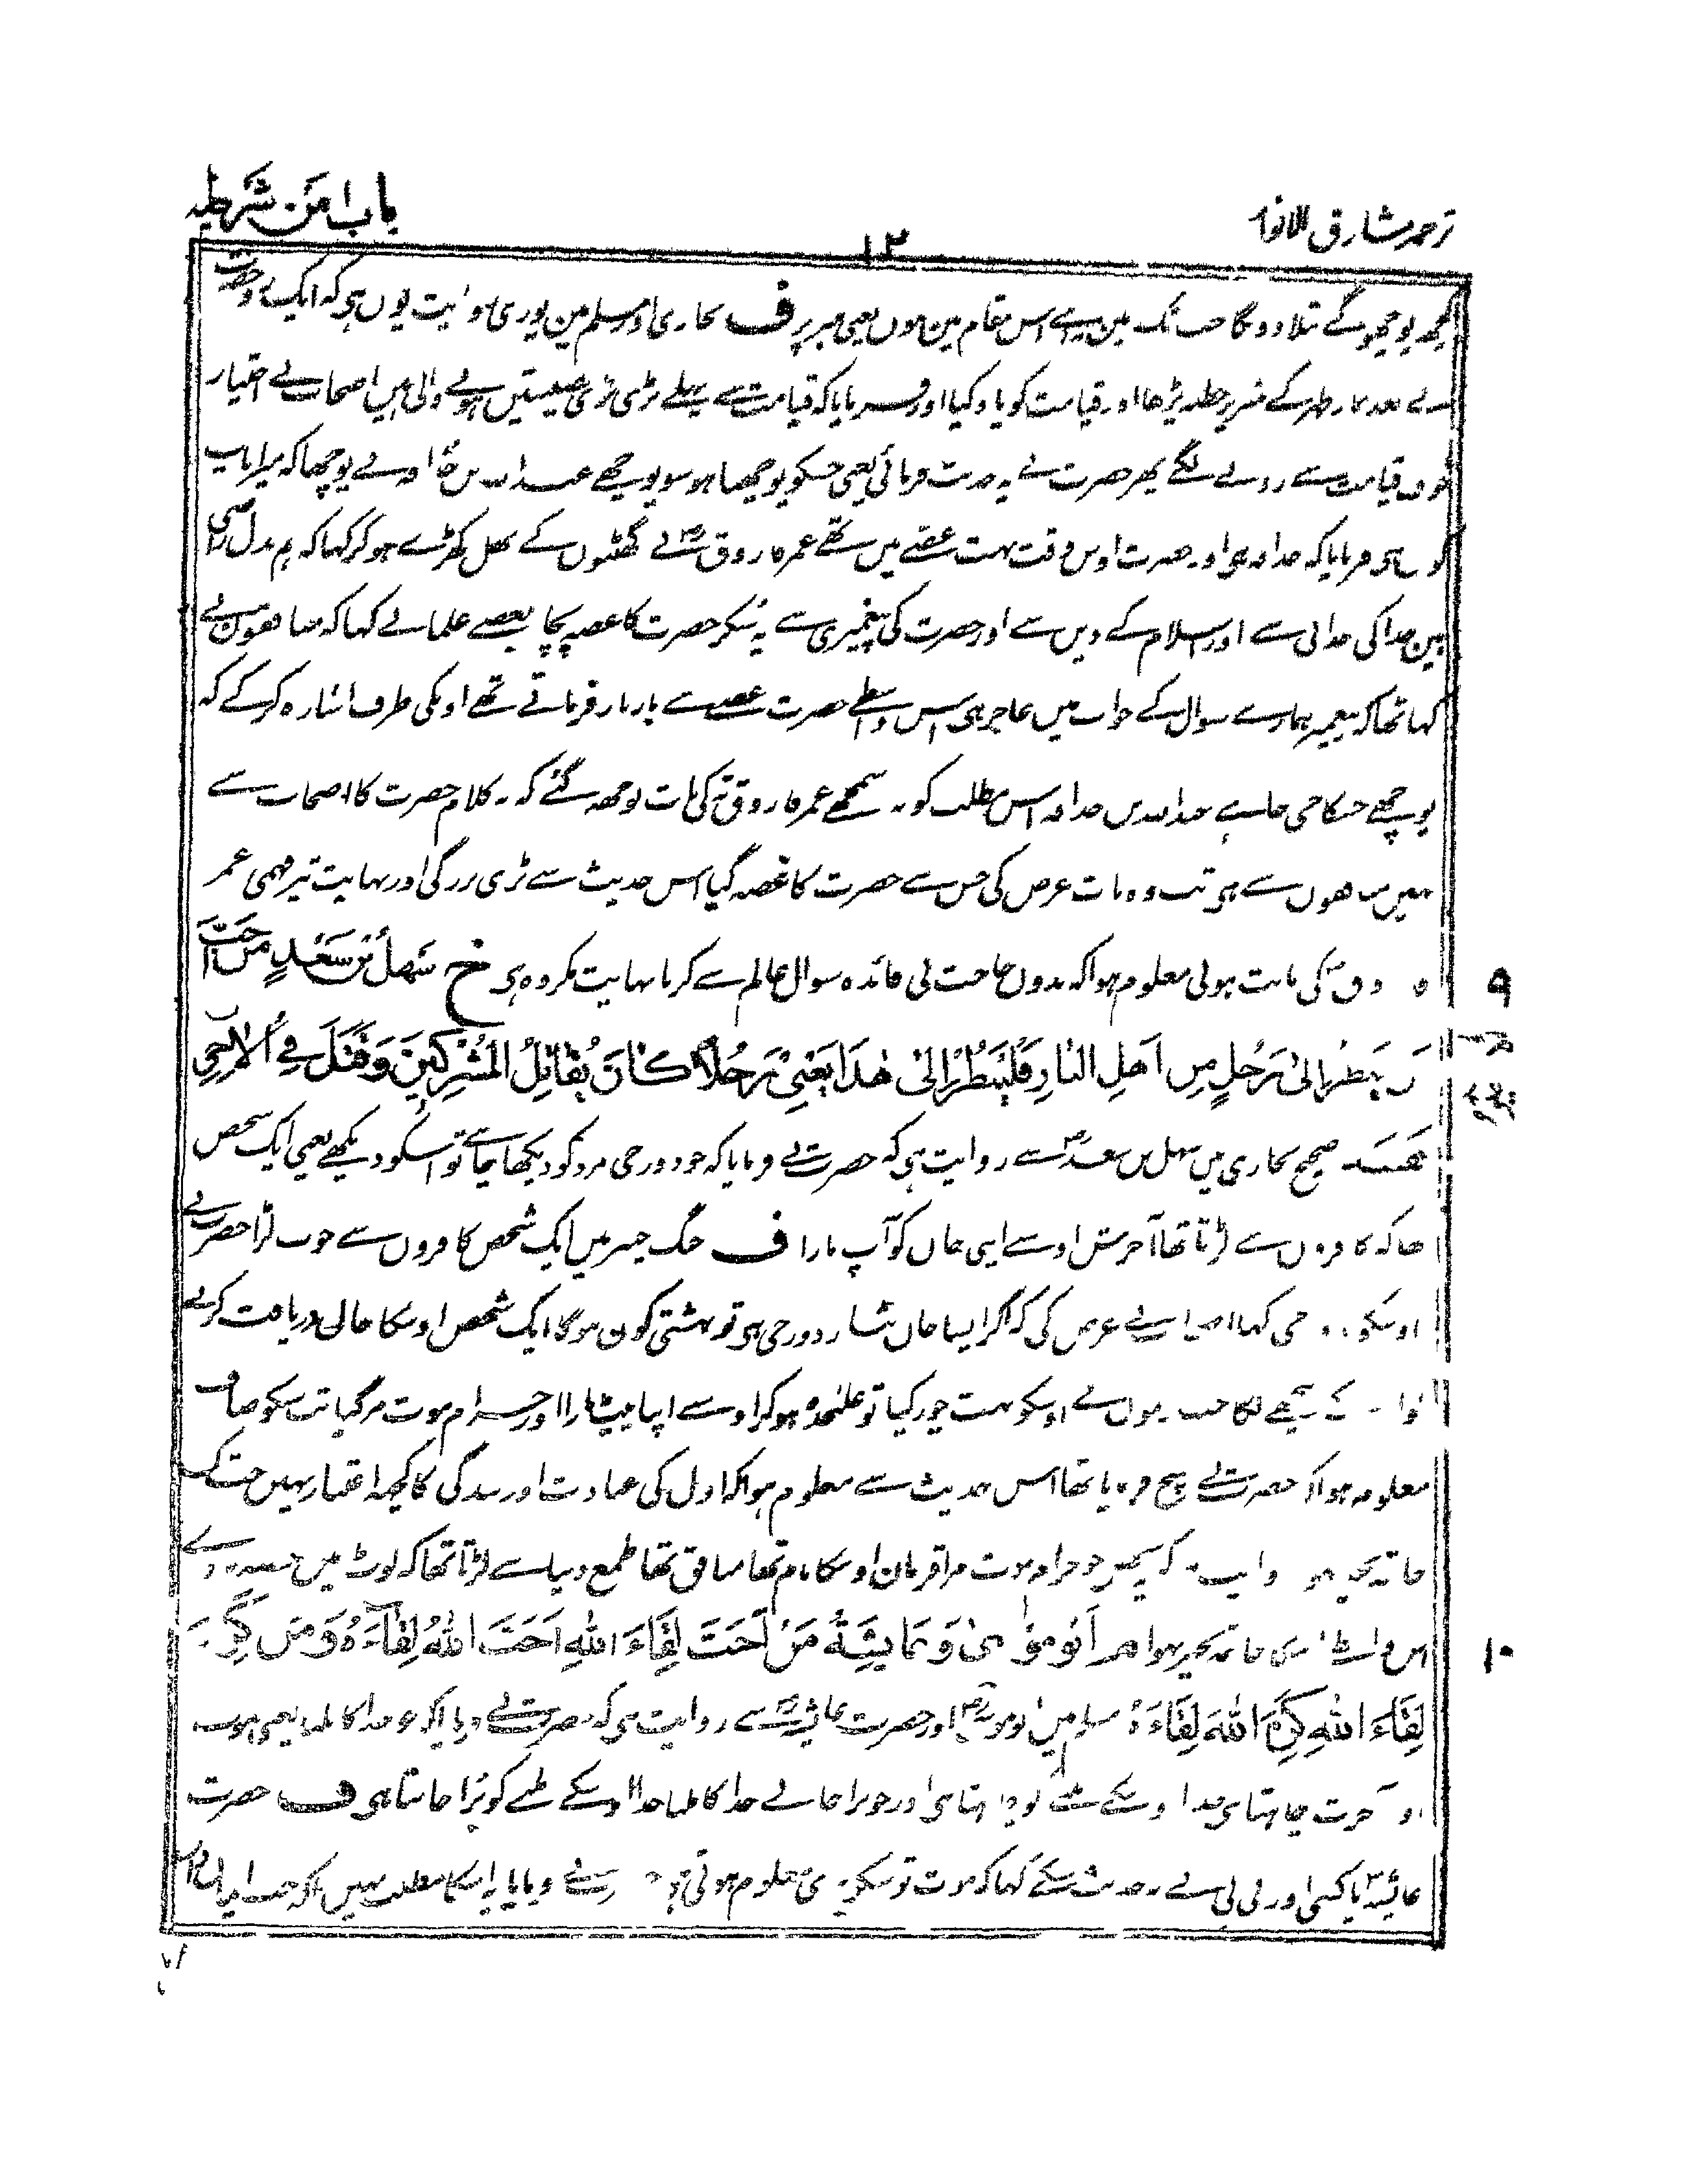 ترجمہ مشارق الانوار
۱۲
باب ا من شرطیہ
کچھ پوچھوگے بتلا دونگا جب تک مین اس مقام مین ہون یعنی ممبر پر ف بخاری اور مسلم مین پوری روایت یوں ہی کہ ایک روز حضرت
نے بعد نماز ظہر کے منبر پر خطبہ پڑھا اور قیامت کو یاد کیا اور فرمایا کہ قیامت سے پہلے بڑی بڑی مصیبتیں ہونے والی ہیں اصحاب بے اختیار
خوف قیامت سے رونے لگے پھر حضرت نے یہ حدیث فرمائی یعنی جسکو پوچھنا ہو سو پوچھے عبد اللہ بن حذافہ نے پوچھا کہ میرا باپ
کون ہی فرمایا کہ حذافہ ہی اور حضرت اوس وقت بہت غصے میں تھے عمر فاروق نے گھٹنوں کے بھل کھڑے ہو کر کہا کہ ہم بدل راضی
ہین خدا کی خدائی سے اور اسلام کے دین سے اور حضرت کی پیغمبری سے یہ سُنکر حضرت کا غصہ بجھا بعضے علما نے کہا کہ منافقون نے
کہا تھا کہ پیغمبر ہمارے سوال کے جواب میں عاجز ہی اس واسطے حضرت غصے سے بار بار فرماتے تھے اونکی طرف اشارہ کر کے کہ
پوچھے جسکا جی چاہے عبد اللہ بن حذافہ اس مطلب کو نہ سمجھے عمر فاروق کی بات بوجھ گئے کہ یہ کلام حضرت کا اصحاب سے
نہیں منافقوں سے ہی تب وہ بات عرض کی جس سے حضرت کا غصہ گیا اس حدیث سے بڑی بزرگی اور نہایت تیز فہمی عمر
فاروق کی ثابت ہوئی معلوم ہوا کہ بدون حاجت بی فائدہ سوال عالم سے کرنا نہایت مکروہ ہی خ سَهلُ بْنُ سَعْدٍ مَنْ اَحَبَّ
۹
اَنْ یَنظُرَ اِلیٰ رَجُلٍ مِن اَهلِ النَّارِ فَلْیَنْظُرْ اِلیٰ هٰذَا یَعْنِیْ رَجُلًا کَانَ یُقَاتِلُ المُشْرِکِیْنَ وَقَتَلَ فِی الْاٰخِرِ
نَفسَہ صحیح بخاری میں سہل بن سعد سے روایت ہی کہ حضرت نے فرمایا کہ جو دوزخی مرد کو دیکھا چاہے تو اسکو دیکھے یعنی ایک شخص
تھا کہ کافروں سے لڑتا تھا آخرش اوسے اپنی جان کو آپ مارا ف جنگ خیبر میں ایک شخص کافروں سے خوب لڑا حضرت نے
اوسکو دوزخی کہا اصحاب نے عرض کی کہ اگر ایسا جان نثار دوزخی ہی تو بہشتی کون ہوگا ایک شخص اوسکا حال دریافت کرنے
کے پیچھے لگا جب اوسکو بہت چور کیا تو علیٰحدہ ہو کر اوسے اپنا پیٹ مارا اور حرام موت مر گیا تب سبکو صاف
معلوم ہوا کہ حضرت نے سچ فرمایا تھا اس حدیث سے معلوم ہوا کہ اول کی عبادت اور بندگی کا کچھ اعتبار نہیں جب تک
خاتمہ بخیر نہو حرام موت مرا قزمان اوسکا نام تھا منافق تھا طمع دنیا سے لڑتا تھا کہ لوٹ میں
اس واسطے خاتمہ بخیر نہوا اَبُو مُوسٰیٰ وَعَایِشَةُ مَنْ اَحَبَّ لِقَاءَ اللهِ اَحَبَّ اللهُ لِقَاءَہُ وَمَن کَرِہَ
۱۰
لِقَاءَ اللهِ کَرِہَ اللهُ لِقَاءَہُ مسلم میں ابو موسی اور حضرت عائشہ سے روایت ہی کہ حضرت نے فرمایا کہ جو خدا کا ملنا یعنی موت
اور آخرت چاہتا ہی خدا اوسکے ملنے کو چاہتا ہی اور جو برا جانے خدا کا ملنا خدا اوسکے ملنے کو بُرا جانتا ہی ف حضرت
عائشہ یا کسی اور بی بی نے یہ حدیث سنکے کہا کہ موت تو سبکو بری معلوم ہوتی ہی حضرت نے فرمایا یہ اسکا مطلب نہیں بلکہ جب ایماندار